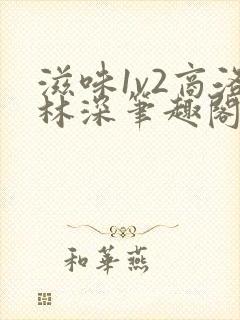 滋味1v2高洛
林深筆趣閣
和華燕